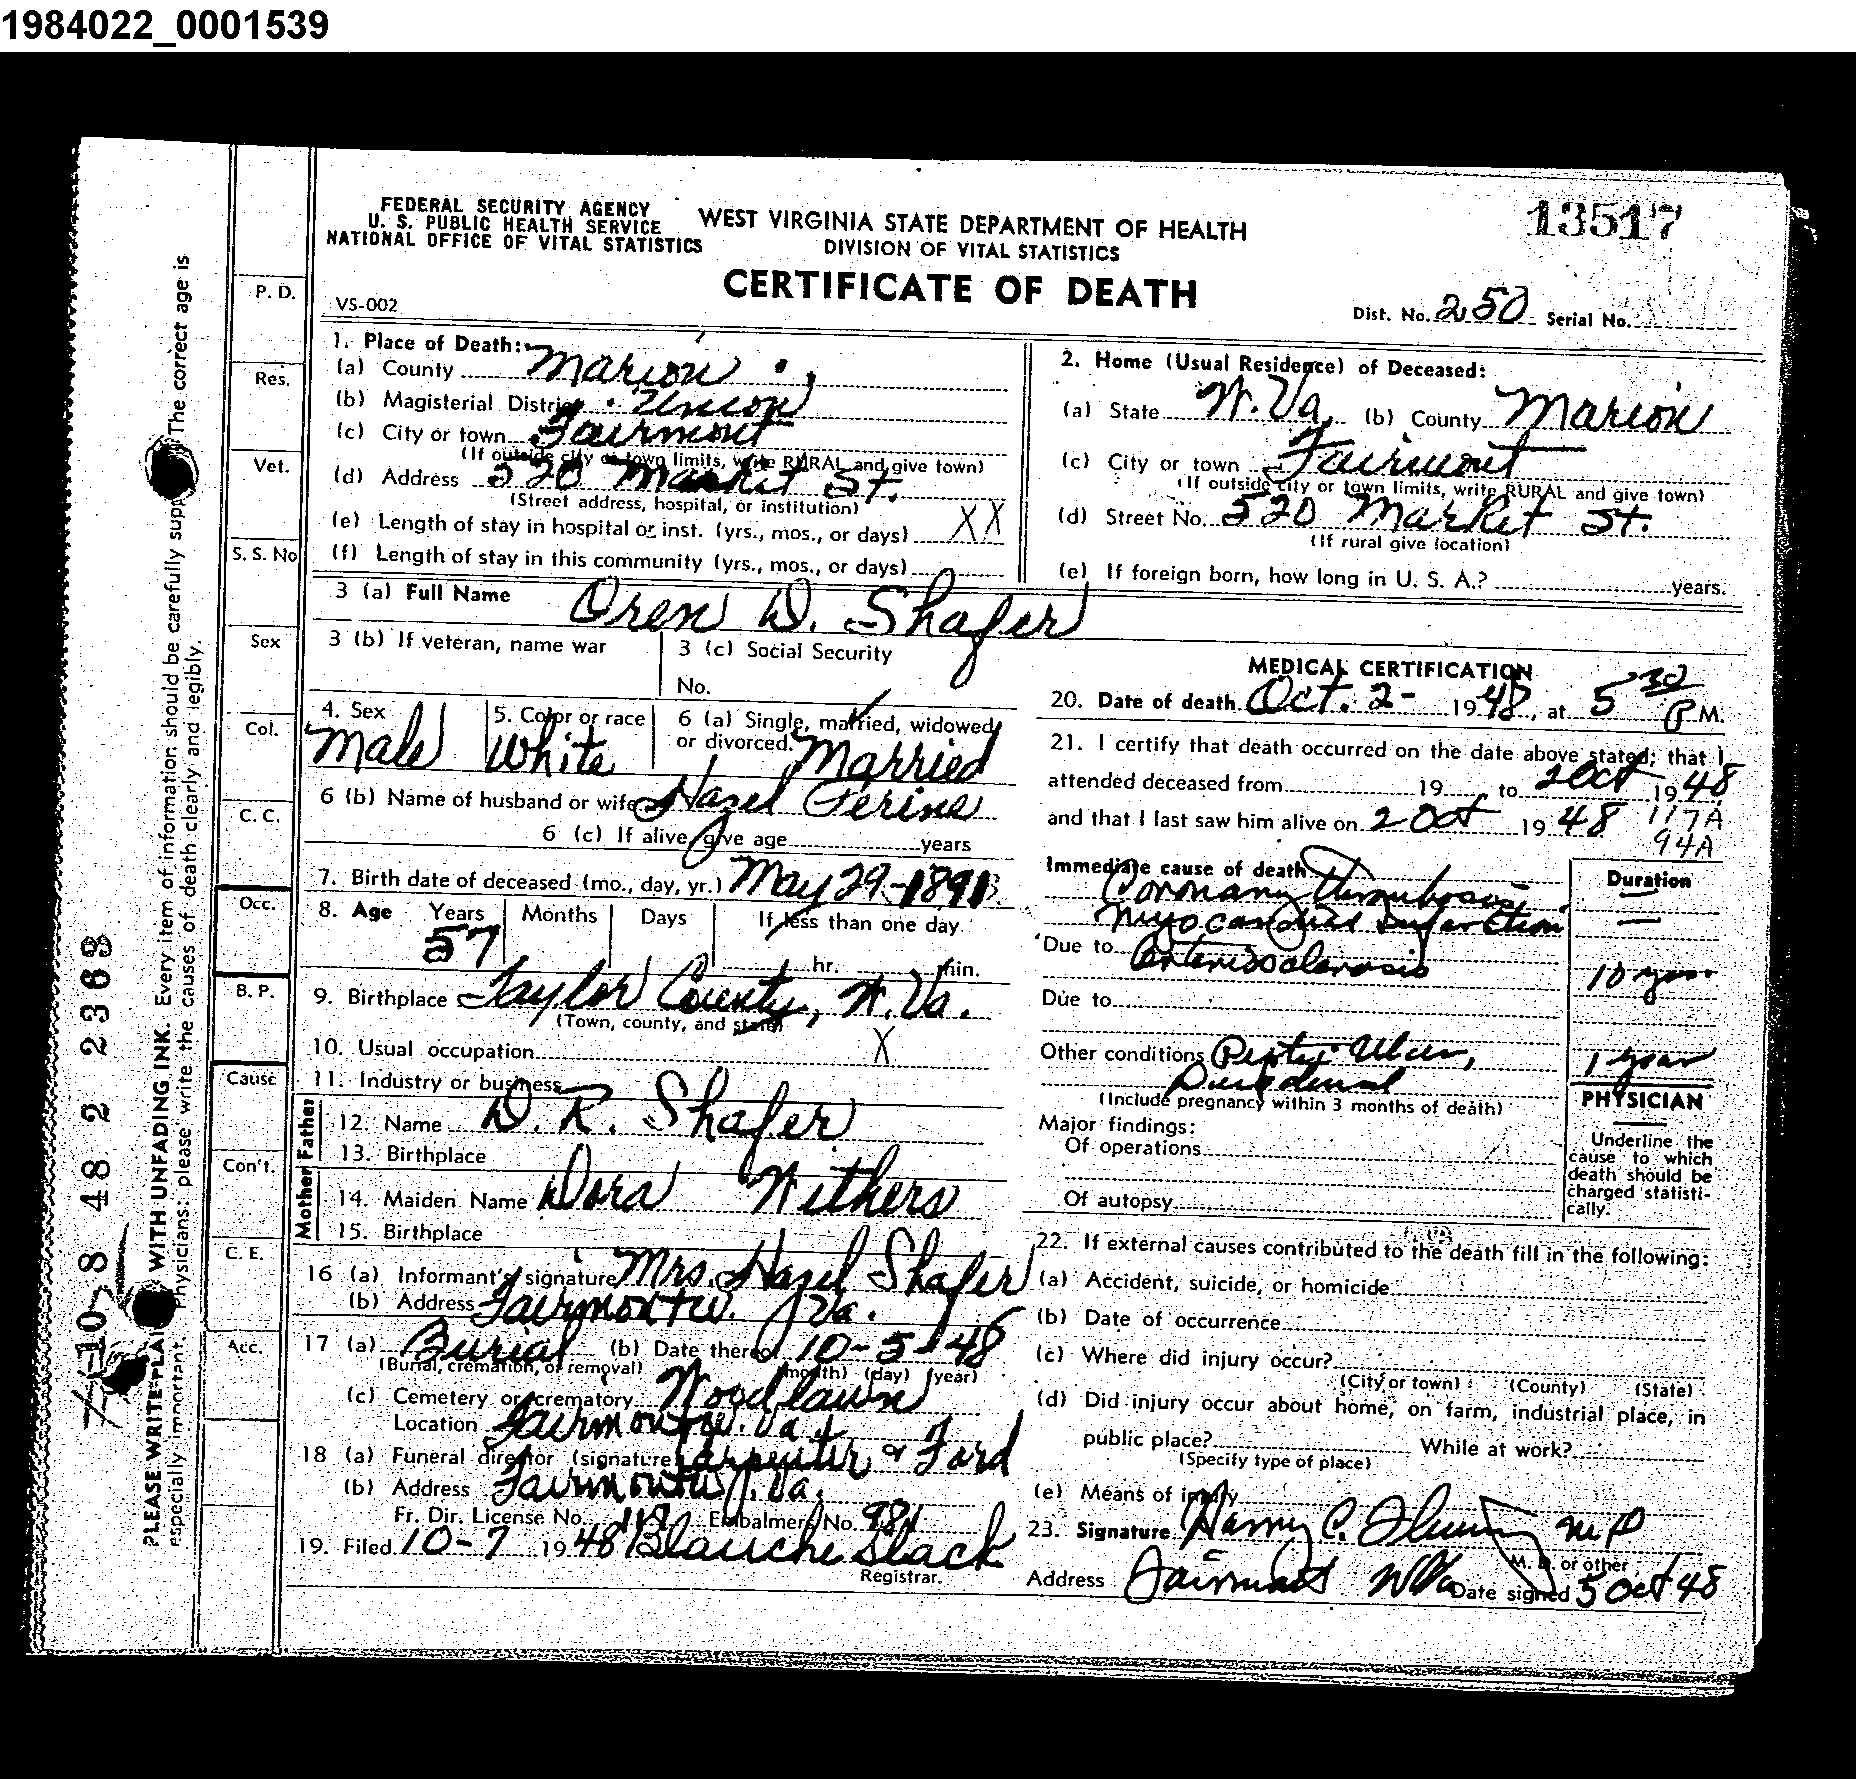 1984022_0001539
FEDERAL SECURITY AGENCY
U. S. PUBLIC HEALTH SERVICE
NATIONAL OFFICE OF VITAL STATISTICS
WEST VIRGINIA STATE DEPARTMENT OF HEALTH
DIVISION OF VITAL STATISTICS
CERTIFICATE OF DEATH
13517
VS-002
Dist. No. 250 Serial No.
1. Place of Death:
(a) County Marion
(b) Magisterial District Union
(c) City or town Fairmont
(If outside city or town limits, write RURAL and give town)
(d) Address 520 Market St.
(Street address, hospital, or institution)
(e) Length of stay in hospital or inst. (yrs., mos., or days) XX
(f) Length of stay in this community (yrs., mos., or days)
2. Home (Usual Residence) of Deceased:
(a) State W. Va. (b) County Marion
(c) City or town Fairmont
(If outside city or town limits, write RURAL and give town)
(d) Street No. 520 Market St.
(If rural give location)
(e) If foreign born, how long in U. S. A.? years.
3 (a) Full Name Oren D. Shafer
3 (b) If veteran, name war
3 (c) Social Security
No.
4. Sex Male
5. Color or race White
6 (a) Single, married, widowed,
or divorced. Married
6 (b) Name of husband or wife Hazel Perine
6 (c) If alive, give age years
7. Birth date of deceased (mo., day, yr.) May 29-1891
8. Age Years Months Days If less than one day
57 hr. min.
9. Birthplace Taylor County, W. Va.
(Town, county, and state)
10. Usual occupation X
11. Industry or business
Father
12. Name D. R. Shafer
13. Birthplace
Mother
14. Maiden Name Dora Withers
15. Birthplace
16 (a) Informant's signature Mrs. Hazel Shafer
(b) Address Fairmont W. Va.
17 (a) Burial (b) Date thereof 10-5-48
(Burial, cremation, or removal) (month) (day) (year)
(c) Cemetery or crematory Woodlawn
Location Fairmont W. Va.
18 (a) Funeral director (signature) Carpenter & Ford
(b) Address Fairmont W. Va.
Fr. Dir. License No. Embalmer No. 984
19. Filed 10-7 1948 Blanche Slack
Registrar.
MEDICAL CERTIFICATION
20. Date of death Oct. 2- 1948, at 5 30 P M.
21. I certify that death occurred on the date above stated; that I
attended deceased from 19 , to 2 Oct 1948
and that I last saw him alive on 2 Oct 1948 117A
94A
Immediate cause of death Duration
Coronary Thrombosis —
Myocardial Infarction —
Due to Arteriosclerosis 10 yrs.
Due to
Other conditions Peptic Ulcer, 1 year
Duodenal
(Include pregnancy within 3 months of death)
PHYSICIAN
Underline the
cause to which
death should be
charged statisti-
cally.
Major findings:
Of operations
Of autopsy
22. If external causes contributed to the death fill in the following:
(a) Accident, suicide, or homicide
(b) Date of occurrence
(c) Where did injury occur?
(City or town) (County) (State)
(d) Did injury occur about home, on farm, industrial place, in
public place? While at work?
(Specify type of place)
(e) Means of injury
23. Signature Harry C. Fleming MD
M. D. or other
Address Fairmont WVa Date signed 5 Oct 48
P. D.
Res.
Vet.
S. S. No
Sex
Col.
C. C.
Occ.
B. P.
Cause
Con't.
C. E.
Acc.
PLEASE WRITE PLAINLY WITH UNFADING INK. Every item of information should be carefully supplied. The correct age is
especially important. Physicians: please write the causes of death clearly and legibly.
10-8 48 2 2368